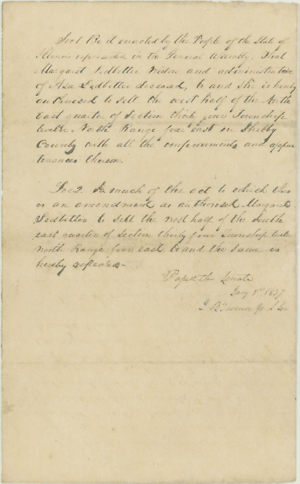 Sec 1 Be it enacted by the People of the State of
Illinois represented in the General Assembly, That
Margaret Ledbetter Widow and administratrix
of Asa Ledbetter deceased, be and she is hereby
authorised to sell the west half of the North
East quarter of Section thirty four Township
twelve North Range four East in Shelby
County with all the improvements and appur
tenances thereon.
Sec 2. So much of the act to which this
is an amendment as authorised Margaret
Ledbetter to sell the west half of the South
east quarter of Section thirty four Township twelve
North Range four east be and the same is
hereby repealed—
Passed the Senate
1st 1837